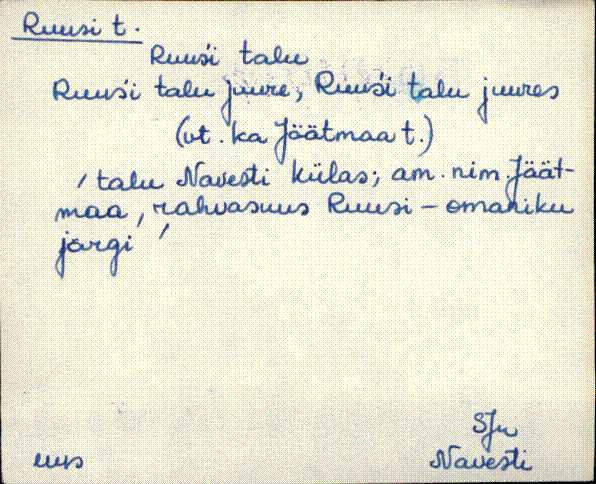 Ruusi t.
Ruuśi talu
Ruuśi talu juure, Ruuśi talu juures
(vt. ka Jäätmaa t.)
/ talu Navesti külas; am. nim. Jäät-
maa, rahvasuus Ruusi - omaniku
järgi /
SJn
uus
Navesti